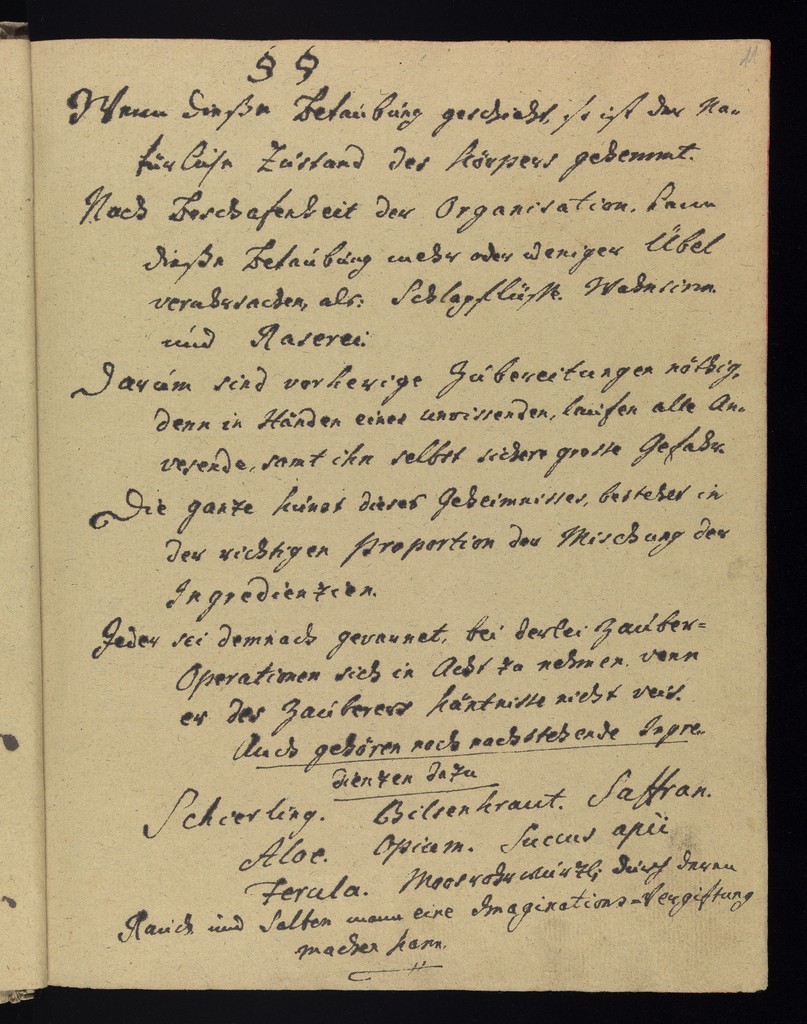 § §
11
Wenn dieße Betaubung geschieht, so ist der Na=
türliche Zustand des Körpers gehemmt.
Nach Beschafenheit der Organisation, kann
dieße Betaübung mehr oder weniger Übel
veruhrsachen, als: Schlagflüße. Wahnsinn.
und Raserei.
Darüm sind vorherige Zübereitungen nöthig,
denn in Händen eines unwissenden, laufen alle An=
wesende, samt ihn selbst sichere grosse Gefahr.
Die ganze Kunst dieses Geheimnisses, bestehet in
der richtigen Proportion der Mischung der
Ingredienzien.
Jeder sei demnach gewarnet, bei derlei Zaüber=
Operationen sich in Acht zu nehmen, wenn
er des Zauberers Käntnisse nicht weis.
Auch gehören noch nachstehende Ingre=
dienzen dazu
Schierling. Bilsenkraut. Saffran.
Aloe. Opium. Succus apii
Ferula. durch deren
Rauch und Salben mann eine Imaginations=Vergiftung
machen kann.